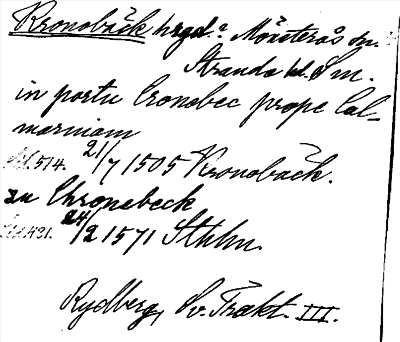 Kronobäck hrgd? Mönsterås sn.
Stranda hd. Sm.
in portu Cronebec prope Cal-
marniam
s. 514. 21/7 1505 Kronobäck.
zu Chronebeck
s. 431. 24/2 1571 Sthlm.
Rydberg, Sv. Trakt. III.